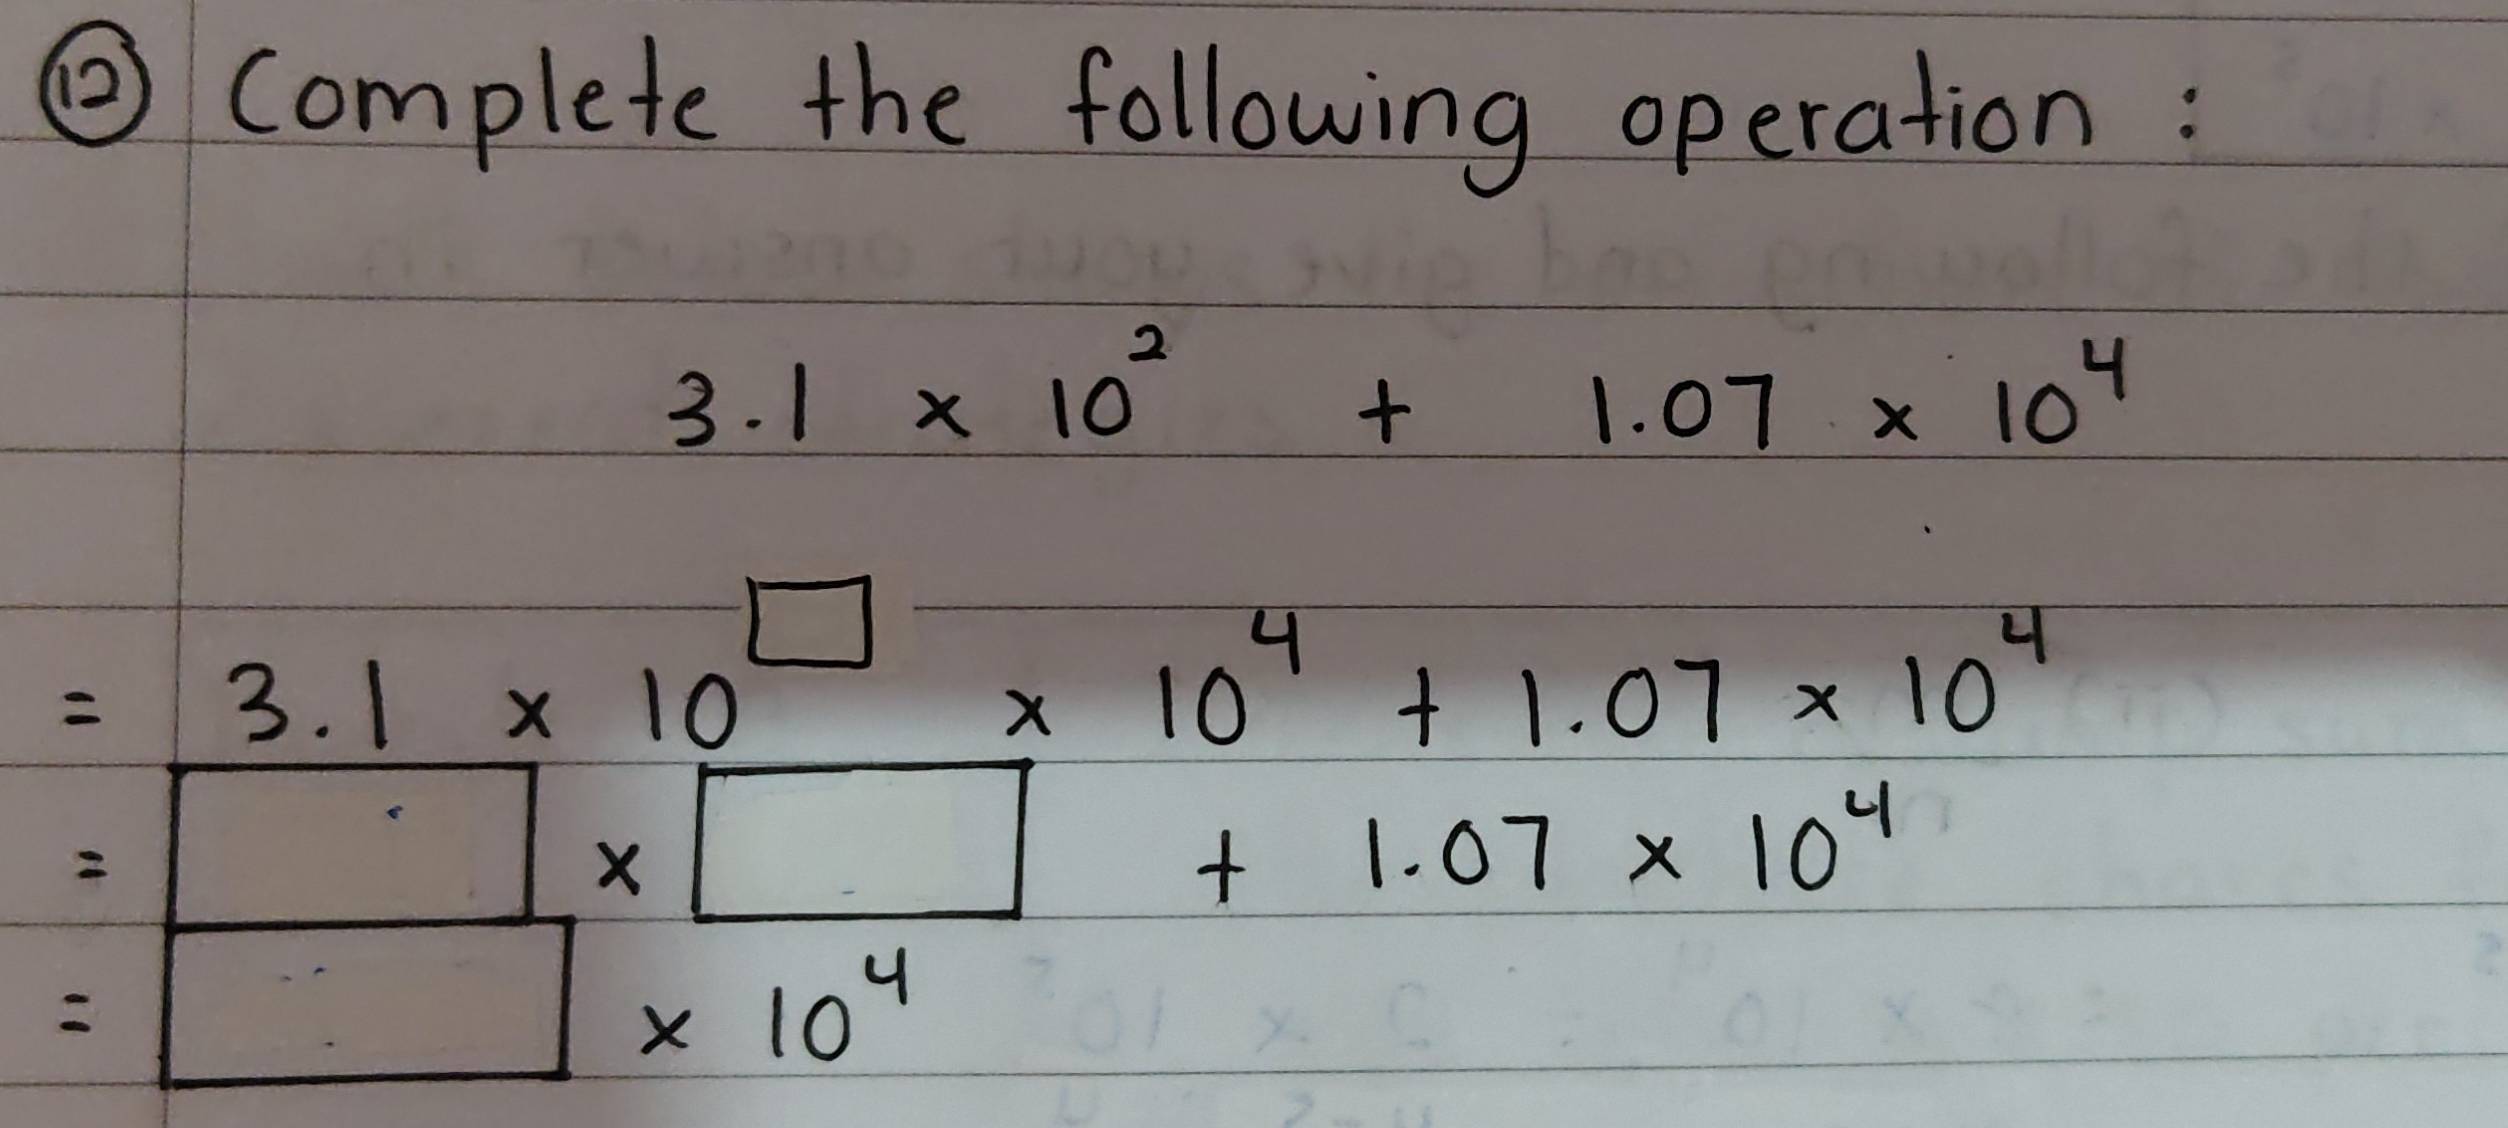 ⑫ Complete the following operation :
3.1 × 10² + 1.07 × 10⁴
= 3.1 × 10^□ × 10⁴ + 1.07 × 10⁴
= □ × □ + 1.07 × 10⁴
= □ × 10⁴